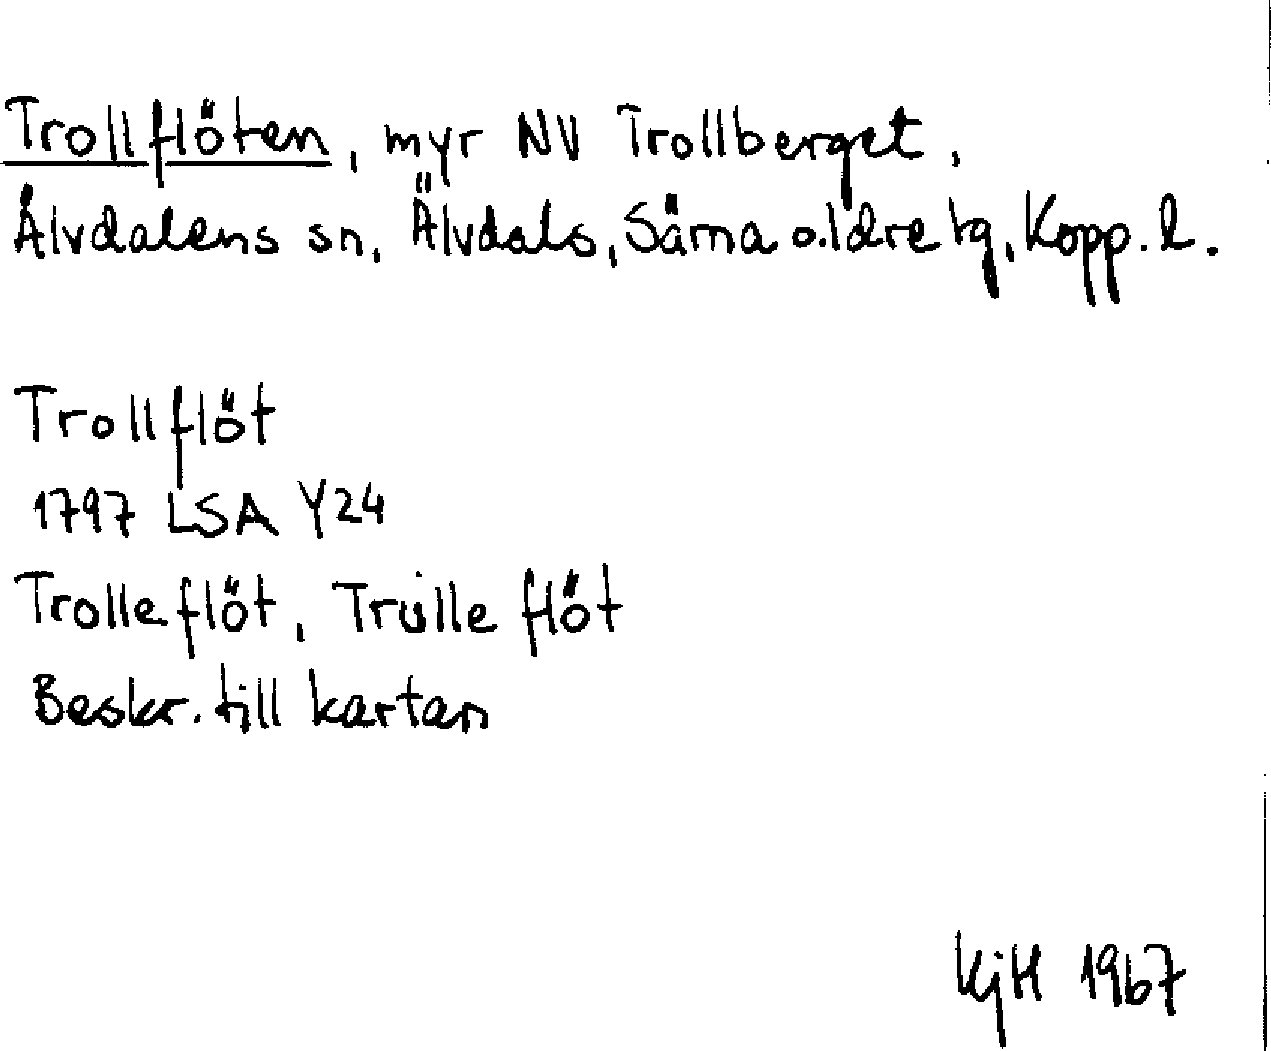 Trollflöten, myr NV Trollberget,
Älvdalens sn, Älvdals, Särna o. Idre tg, Kopp. l.
Trollflöt
1797 LSA Y24
Trolleflöt, Trulle flöt
Beskr. till kartan
KjH 1967